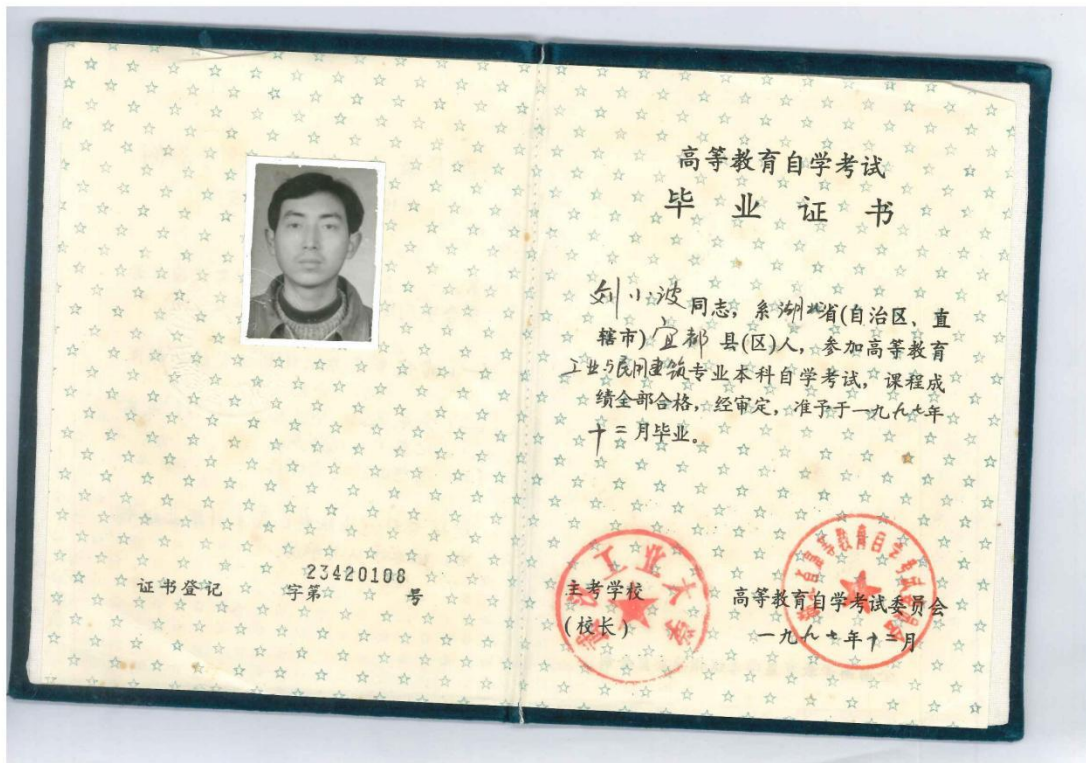 证书登记 字第23420108号
高等教育自学考试
毕业证书
刘小波同志，系湖北省(自治区、直
辖市)宜都县(区)人，参加高等教育
工业与民用建筑专业本科自学考试，课程成
绩全部合格，经审定，准予于一九九七年
十二月毕业。
工业大学
主考学校
(校长)
高等教育自学考试委员会
一九九七年十二月